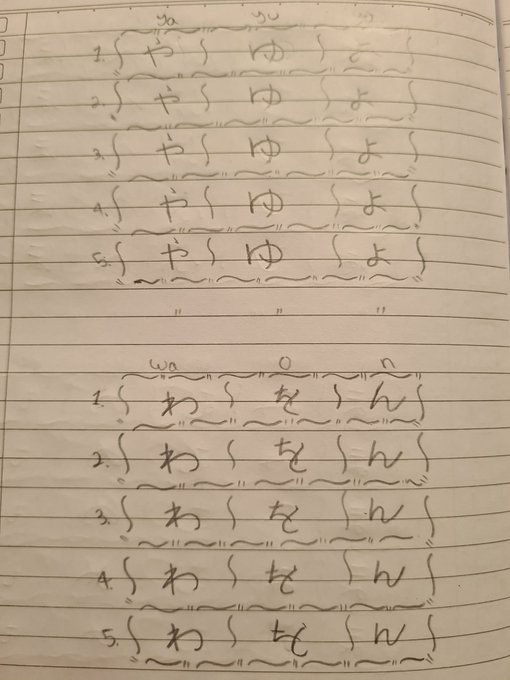 ya yu
1. や ゆ よ
2. や ゆ よ
3. や ゆ よ
4. や ゆ よ
5. や ゆ よ
" " "
wa o n
1. わ を ん
2. わ を ん
3. わ を ん
4. わ を ん
5. わ を ん